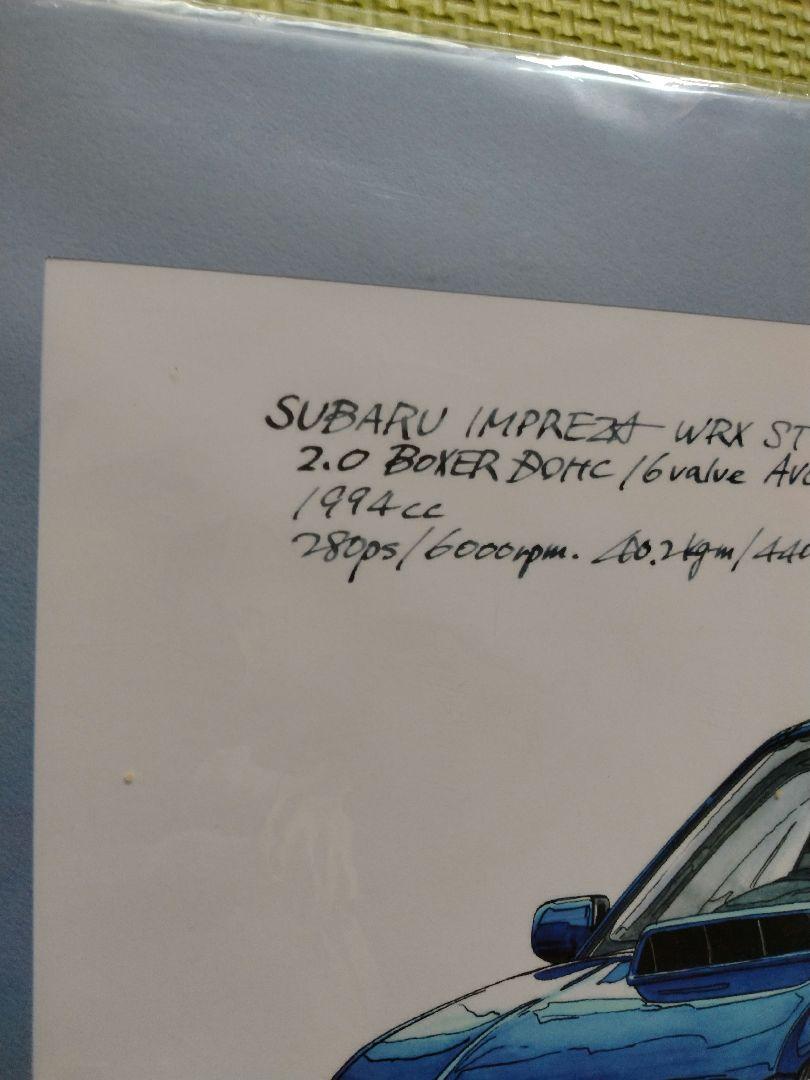 SUBARU IMPREZA WRX ST
2.0 BOXER DOHC 16valve AVC
1994cc
280ps/6000rpm. 40.2kgm/440